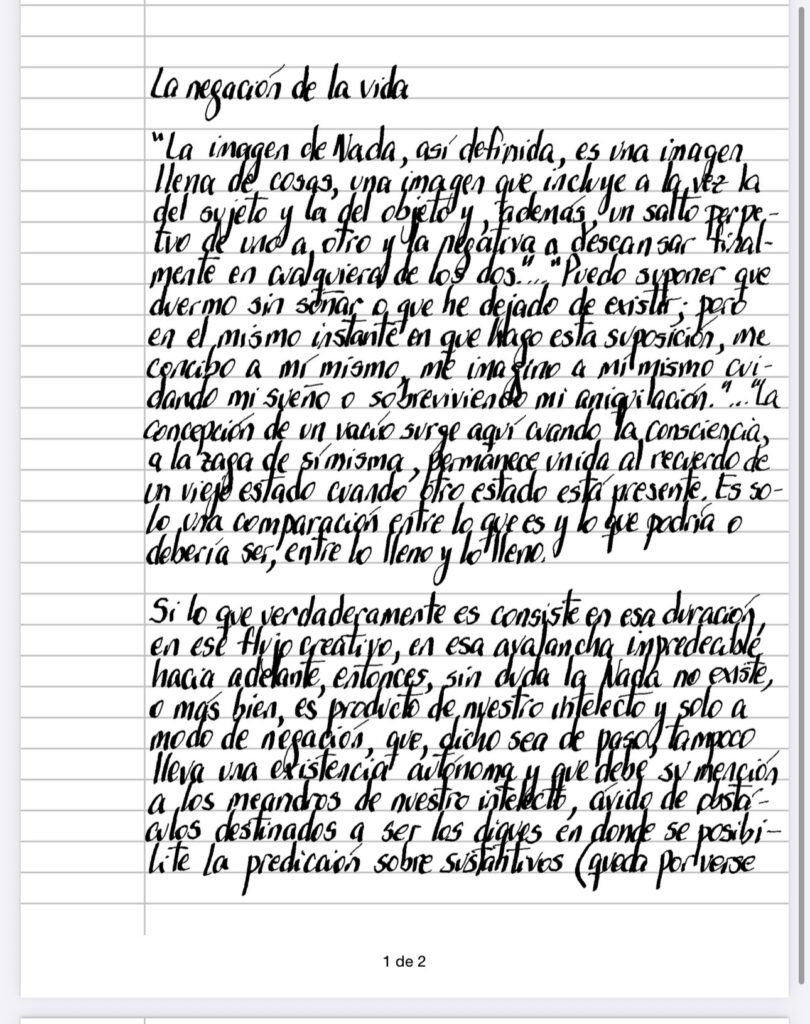 La negación de la vida
"La imagen de Nada, así definida, es una imagen
llena de cosas, una imagen que incluye a la vez la
del sujeto y la del objeto y, además, un salto perpe-
tuo de uno a otro y la negativa a descansar final-
mente en cualquiera de los dos."..."Puedo suponer que
duermo sin soñar o que he dejado de existir; pero
en el mismo instante en que hago esta suposición, me
concibo a mí mismo, me imagino a mí mismo cui-
dando mi sueño o sobreviviendo mi aniquilación."..."La
concepción de un vacío surge aquí cuando la consciencia,
a la zaga de sí misma, permanece unida al recuerdo de
un viejo estado cuando otro estado está presente. Es so-
lo una comparación entre lo que es y lo que podría o
debería ser, entre lo lleno y lo lleno.
Si lo que verdaderamente es consiste en esa duración,
en ese flujo creativo, en esa avalancha impredecible
hacia adelante, entonces, sin duda la Nada no existe,
o más bien, es producto de nuestro intelecto y solo a
modo de negación, que, dicho sea de paso, tampoco
lleva una existencia autónoma y que debe su mención
a los meandros de nuestro intelecto, ávido de obstá-
culos destinados a ser los diques en donde se posibi-
lite la predicación sobre sustantivos (queda por verse
1 de 2